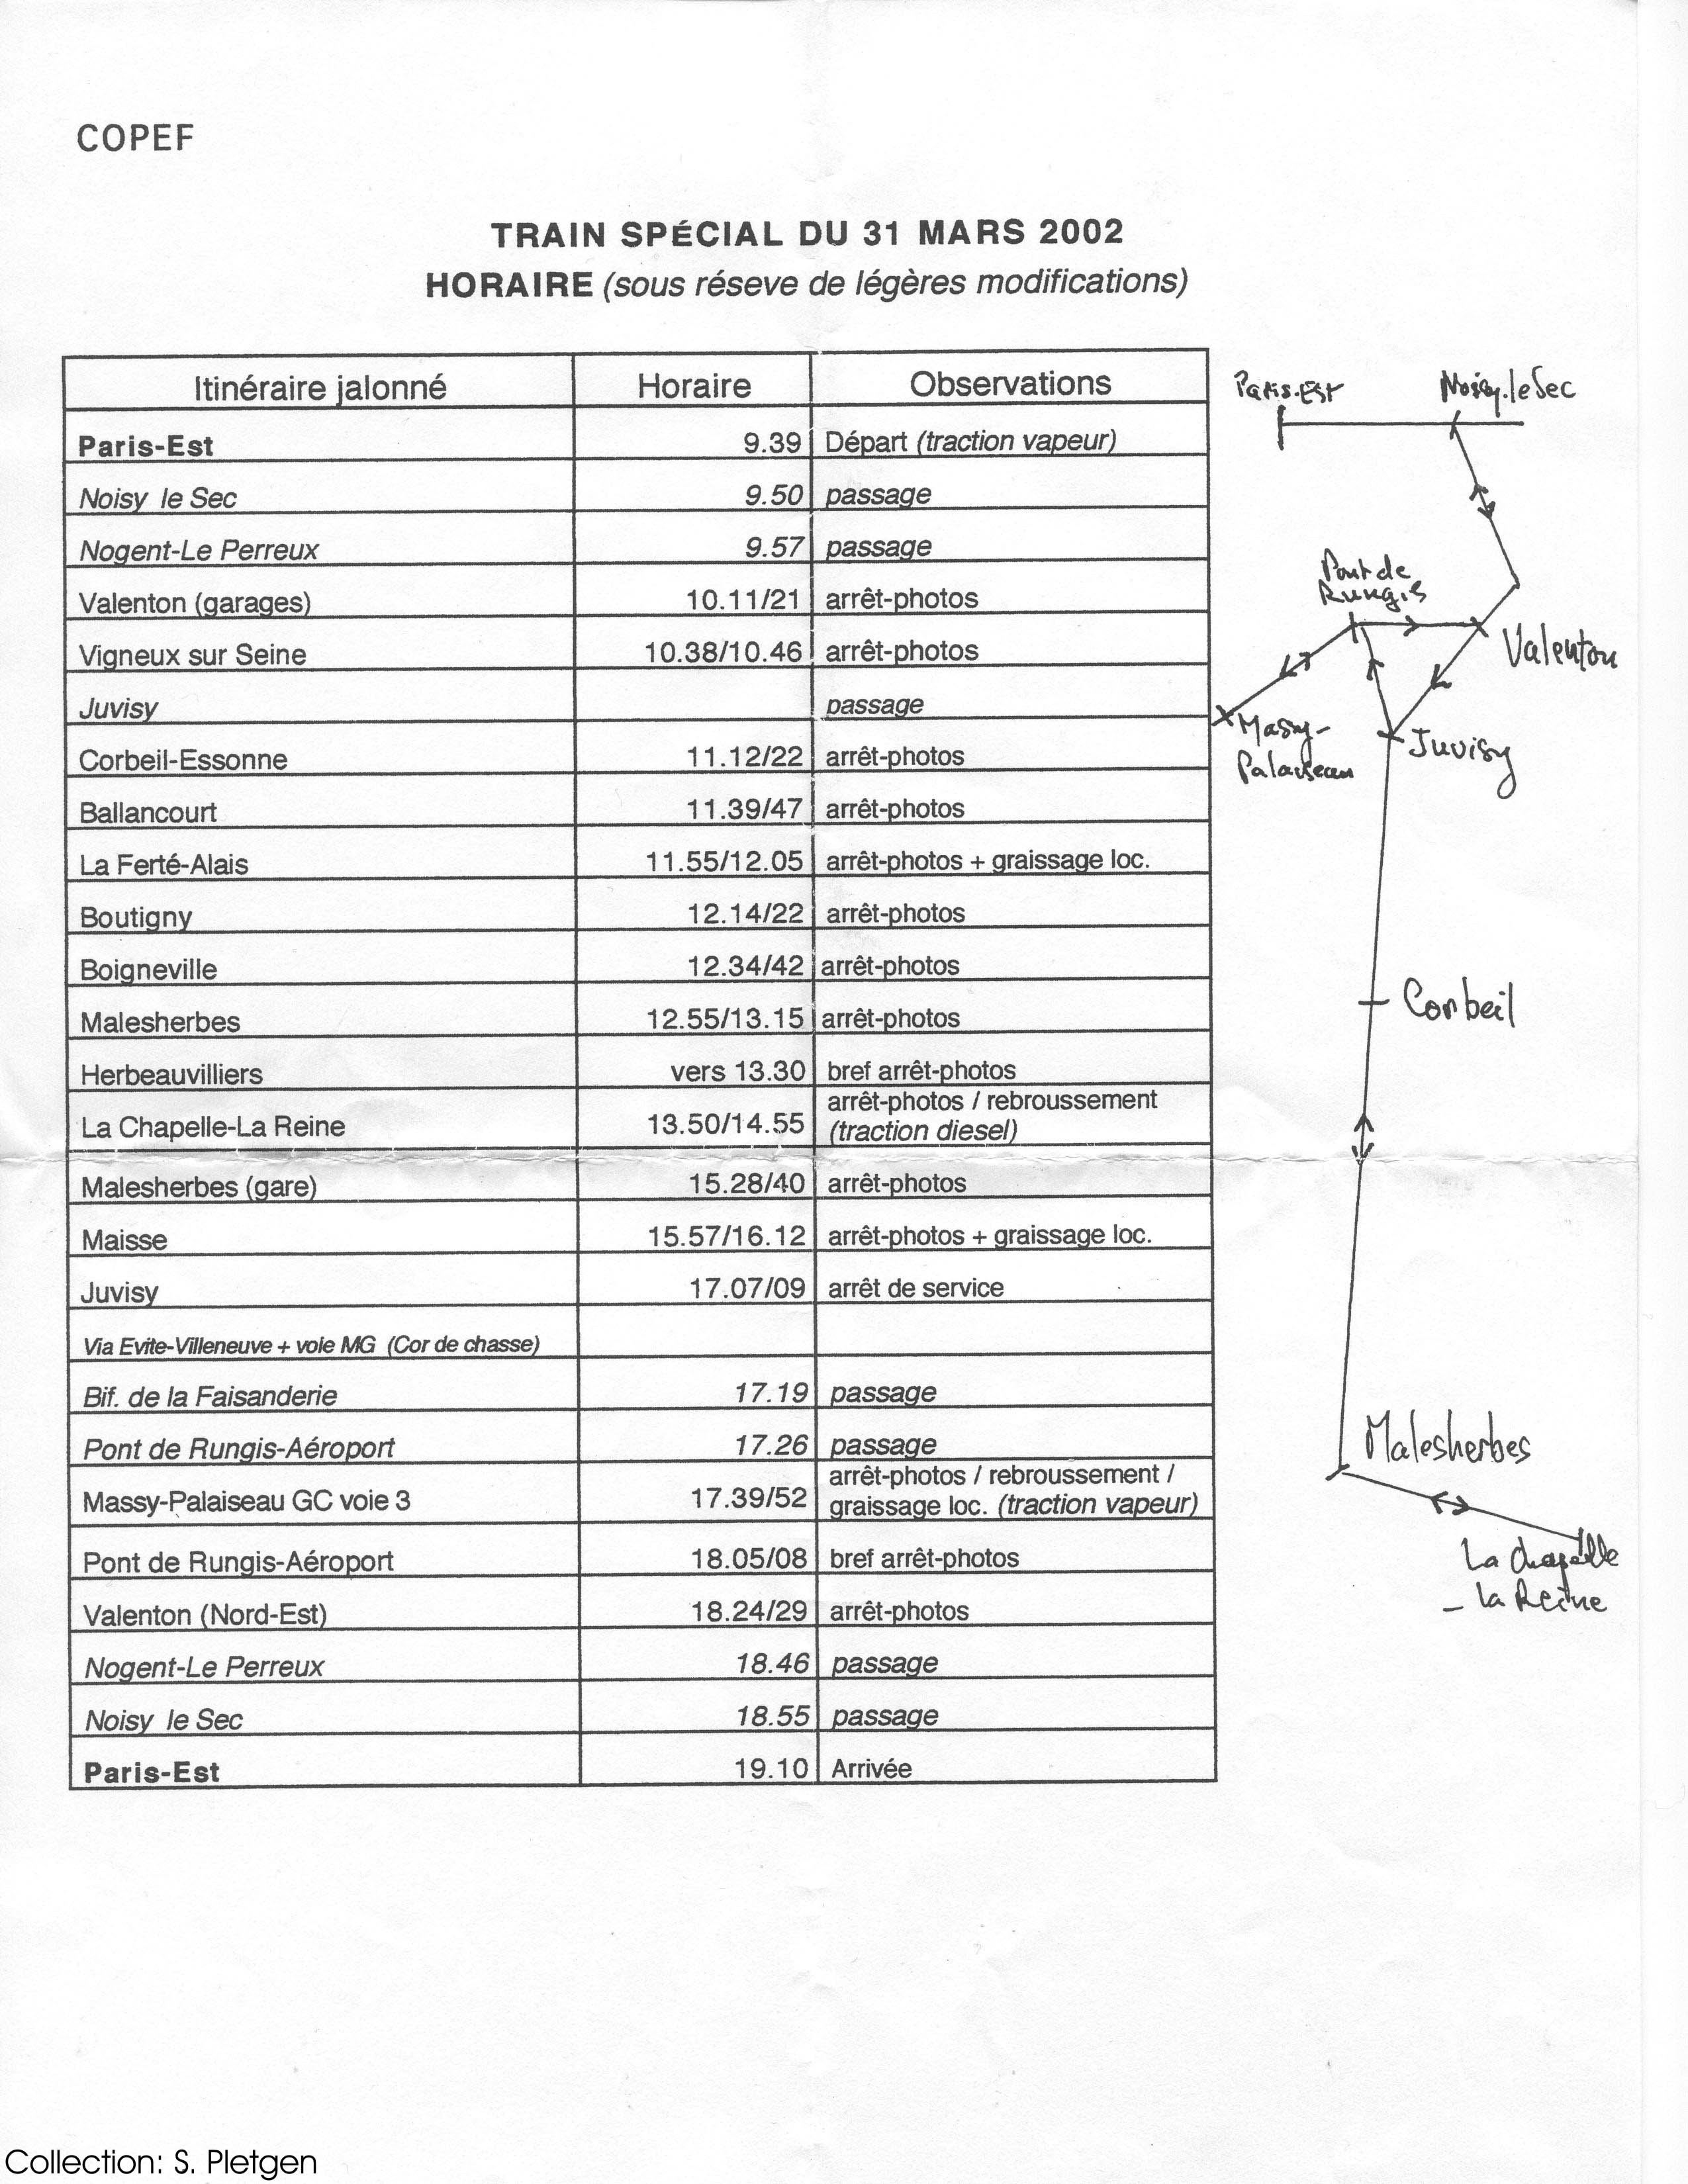 COPEF
TRAIN SPÉCIAL DU 31 MARS 2002
HORAIRE (sous réseve de légères modifications)
Itinéraire jalonné Horaire Observations
Paris-Est 9.39 Départ (traction vapeur)
Noisy le Sec 9.50 passage
Nogent-Le Perreux 9.57 passage
Valenton (garages) 10.11/21 arrêt-photos
Vigneux sur Seine 10.38/10.46 arrêt-photos
Juvisy passage
Corbeil-Essonne 11.12/22 arrêt-photos
Ballancourt 11.39/47 arrêt-photos
La Ferté-Alais 11.55/12.05 arrêt-photos + graissage loc.
Boutigny 12.14/22 arrêt-photos
Boigneville 12.34/42 arrêt-photos
Malesherbes 12.55/13.15 arrêt-photos
Herbeauvilliers vers 13.30 bref arrêt-photos
La Chapelle-La Reine 13.50/14.55 arrêt-photos / rebroussement
(traction diesel)
Malesherbes (gare) 15.28/40 arrêt-photos
Maisse 15.57/16.12 arrêt-photos + graissage loc.
Juvisy 17.07/09 arrêt de service
Via Evite-Villeneuve + voie MG (Cor de chasse)
Bif. de la Faisanderie 17.19 passage
Pont de Rungis-Aéroport 17.26 passage
Massy-Palaiseau GC voie 3 17.39/52 arrêt-photos / rebroussement /
graissage loc. (traction vapeur)
Pont de Rungis-Aéroport 18.05/08 bref arrêt-photos
Valenton (Nord-Est) 18.24/29 arrêt-photos
Nogent-Le Perreux 18.46 passage
Noisy le Sec 18.55 passage
Paris-Est 19.10 Arrivée
Paris-Est
Noisy-le Sec
Pont de
Rungis
Valenton
Massy-
Palaiseau
Juvisy
Corbeil
Malesherbes
La Chapelle
- la Reine
Collection: S. Pletgen